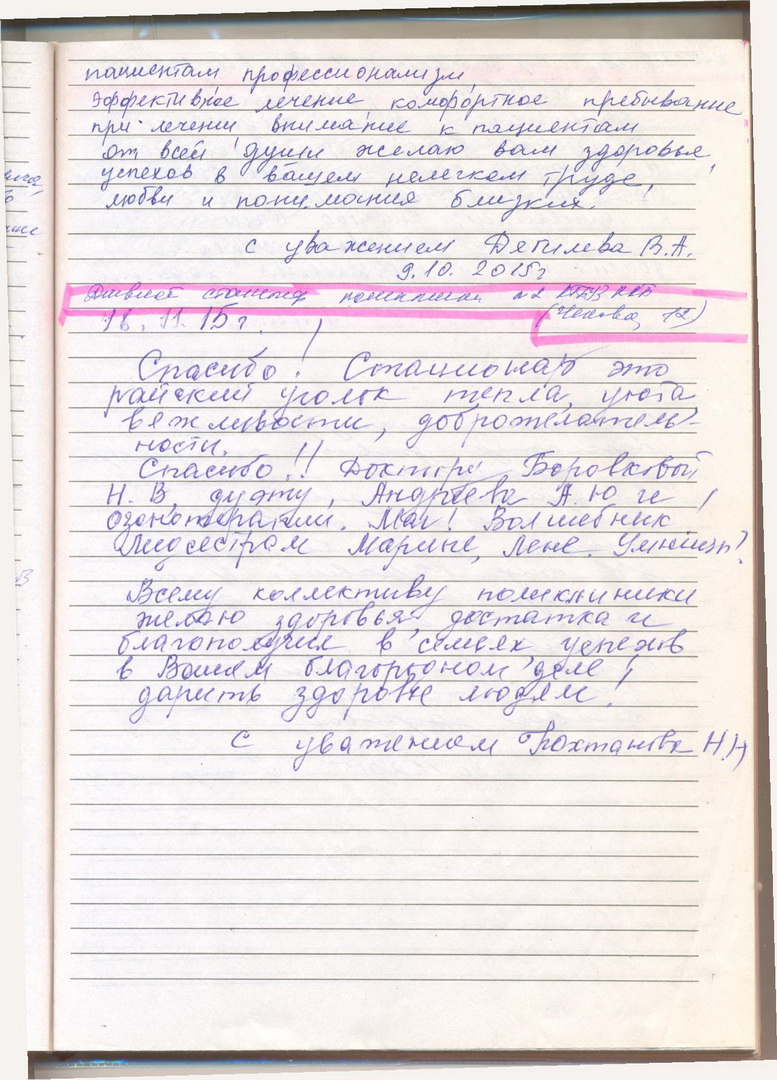 пациентам профессионализм,
эффективное лечение комфортное пребывание
при лечении внимание к пациентам
от всей души желаю вам здоровья,
успехов в вашем нелегком труде,
любви и понимания близких.
с уважением В.А.
9.10. 2015г
Дневной стационар поликлиники №2
18.11.15г. (Чехова, 12)
Спасибо! Стационар это
райский уголок тепла, уюта
вежливости, доброжелатель-
ности.
Спасибо!! Доктору Боровковой
Н.В. Андреева А.Ю и
озонотерапии. Маг! Волшебник
Медсестрам Марине, Лене. Умницы!
Всему коллективу поликлиники
желаю здоровья достатка и
благополучия в семьях успехов
в Вашем благородном деле
дарить здоровье людям!
С уважением Н.Н